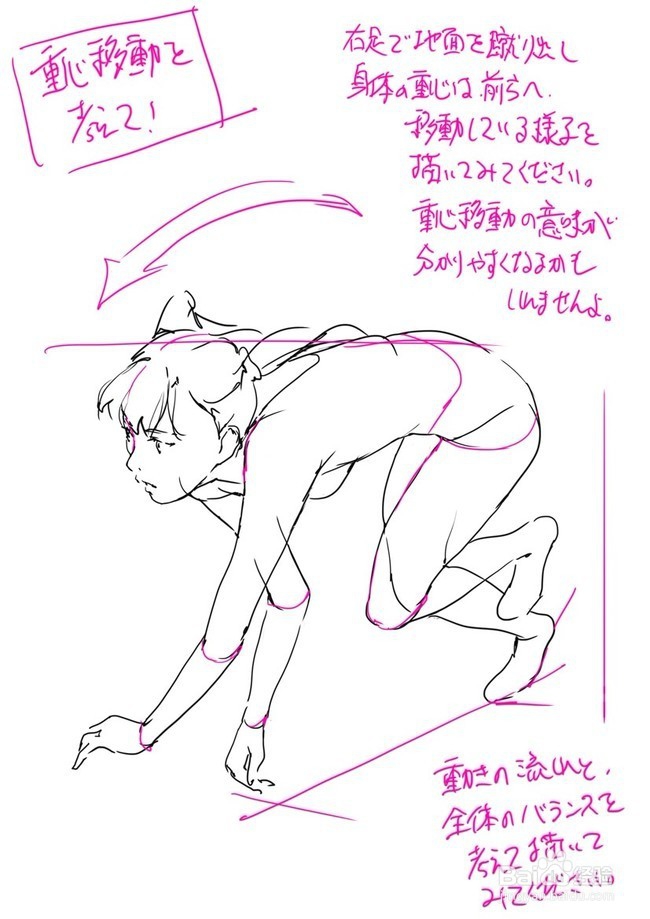 重心移動を
考えて！
右足で地面を蹴り出し
身体の重心は前方へ
移動している様子を
描いてみてください。
重心移動の意味が
分かりやすくなるかも
しれませんよ。
動きの流れと、
全体のバランスを
考えて描いて
みてください。
Baidu经验